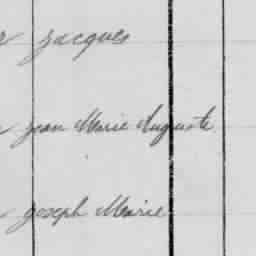 Jacques
Jean Marie Auguste
Joseph Marie